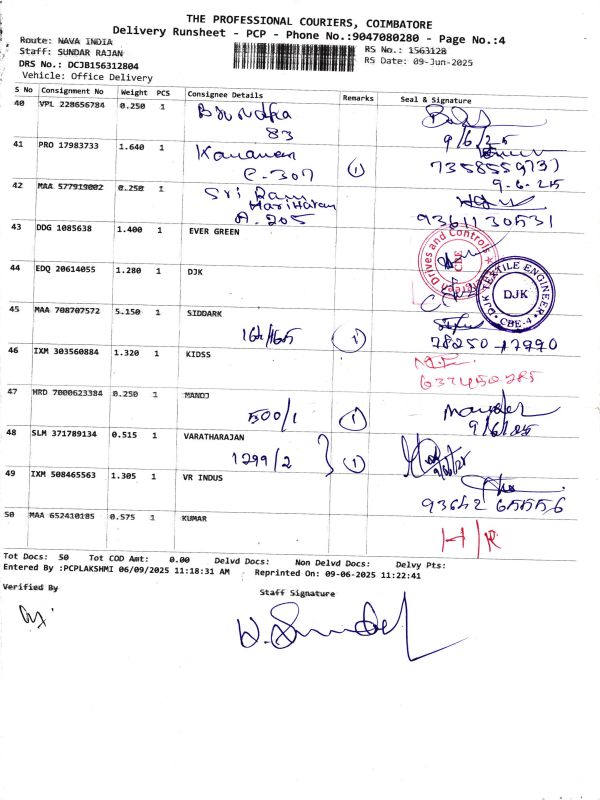 THE PROFESSIONAL COURIERS, COIMBATORE
Delivery Runsheet - PCP - Phone No.:9047080280 - Page No.:4
Route: NAVA INDIA
RS No.: 1563128
Staff: SUNDAR RAJAN
RS Date: 09-Jun-2025
DRS No.: DCJB156312804
Vehicle: Office Delivery
S No Consignment No Weight PCS Consignee Details Remarks Seal & Signature
40 VPL 228656784 0.250 1
83
9/6/25
41 PRO 17983733 1.640 1
C-307 1 7358559737
9-6-25
42 MAA 577919002 0.250 1 Sri Ram
Hariharan
A-205 9361130531
43 DDG 1085638 1.400 1 EVER GREEN
Drives and Controls
CBE
44 EDQ 20614055 1.280 1 DJK
DJK TEXTILE ENGINEER
DJK
CBE-4
45 MAA 708707572 5.150 1 SIDDARK
164/165 1 78250 17990
46 IXM 303560884 1.320 1 KIDSS
47 HRD 7000623384 0.250 1 MANOJ
500/1 1 9/6/25
48 SLM 371789134 0.515 1 VARATHARAJAN
1299/2 1
49 IXM 508465563 1.305 1 VR INDUS
93642 65556
50 MAA 652410185 0.575 1 KUMAR
Tot Docs: 50 Tot COD Amt: 0.00 Delvd Docs: Non Delvd Docs: Delvy Pts:
Entered By :PCPLAKSHMI 06/09/2025 11:18:31 AM Reprinted On: 09-06-2025 11:22:41
Verified By
Staff Signature